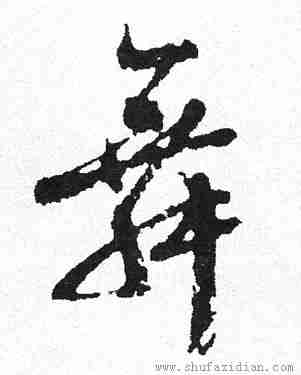 舞
www.shufazidian.com